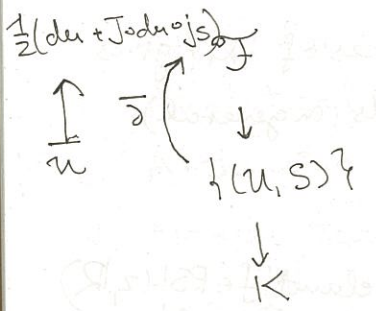 ½(du + J∘du∘js) ∂̄ F
↑ ↓
u {(u, S)}
↓
K